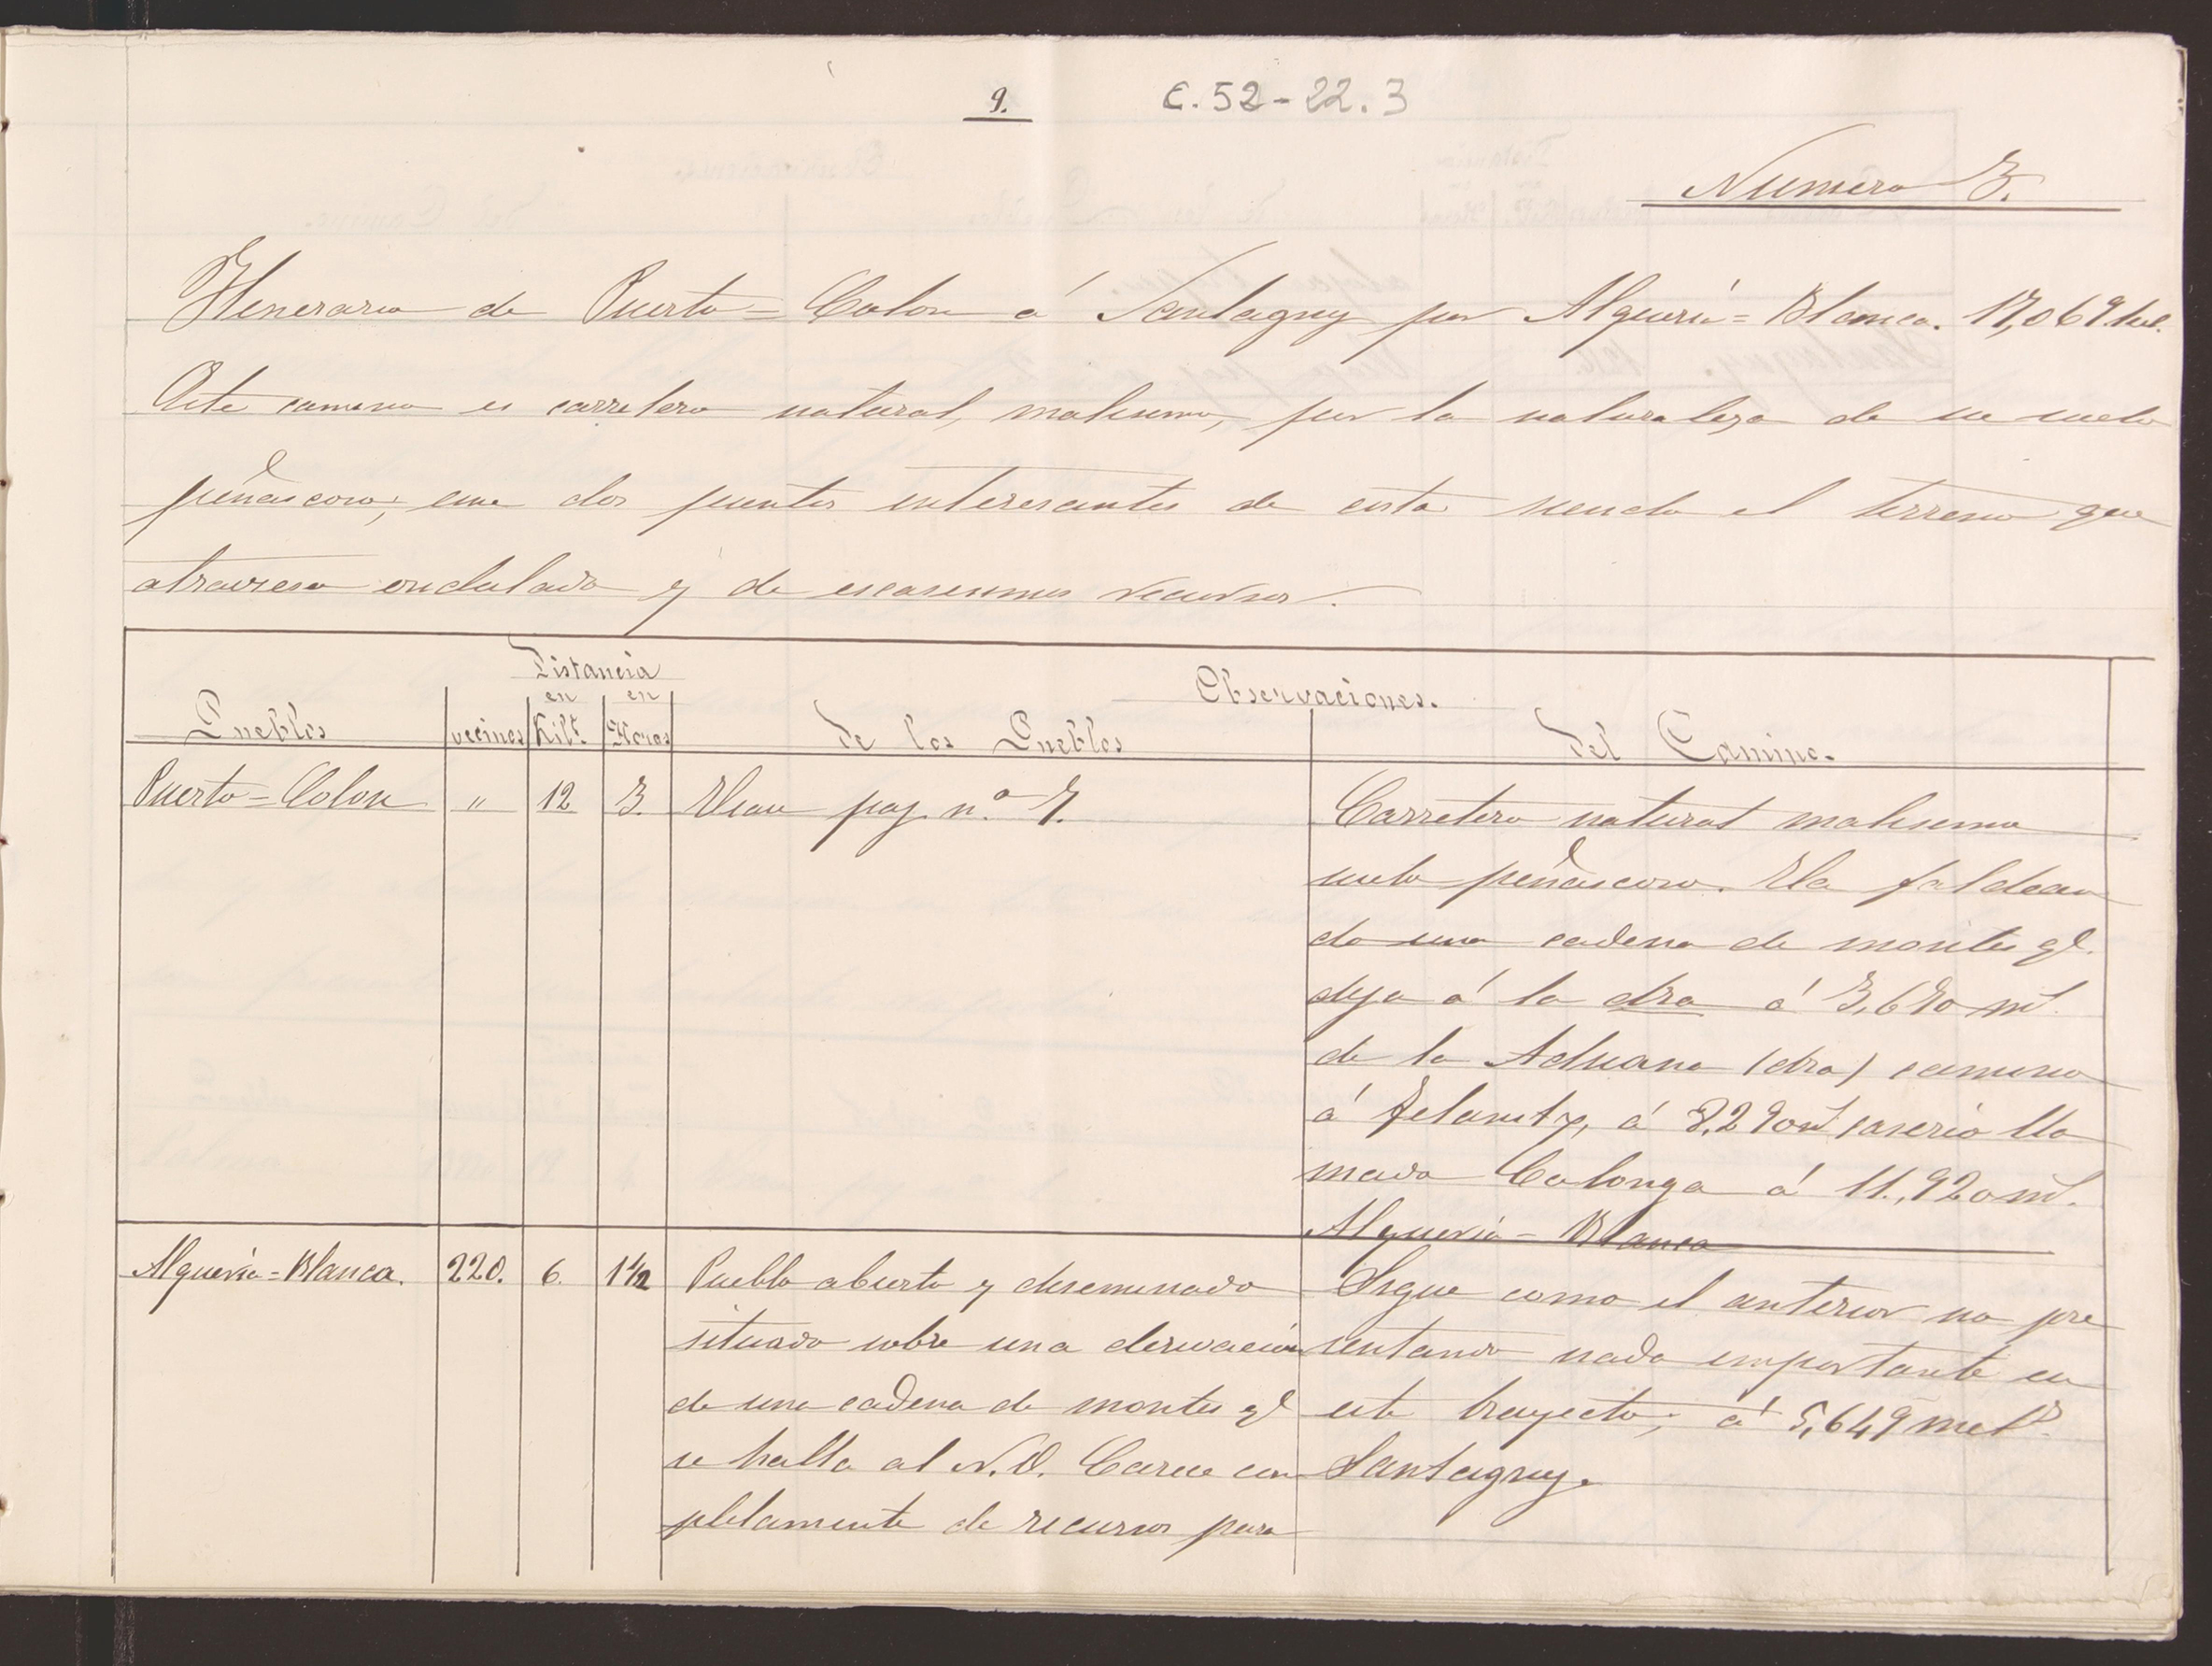 9.
C. 52-22.3
Numero 3.
Itinerario de Puerto=Colon á Santagny por Algueria=Blanca. 17,069 kil.
Este camino es carretero natural, malisimo, por la naturaleza de su suelo
peñascoso; une dos puntos interesantes de costa siendo el terreno que
atraviesa ondulado y de escasisimos recursos.
Distancia
Observaciones.
Pueblos vecinos en Kilt. en Horas de los Pueblos del Camino.
Puerto=Colon " 12 3. Vease pag. n.º 7.
Carretero natural malisimo
suelo peñascoso. Va faldean
do una cadena de montes ql.
deja á la dra á 3,690 mt.
de la Aduana (dra) camino
á Felanitx, á 8,290 mt caserio lla
mado Calonga á 11,920 mt.
Algueria=Blanca
Algueria=Blanca. 220. 6. 1 1/2 Pueblo abierto y diseminado
situado sobre una derivacion
de una cadena de montes ql
se halla al N.O. Carece com
pletamente de recursos para
Sigue como el anterior no pre
sentando nada importante en
este trayecto; á 5,649 met.
Santagny.